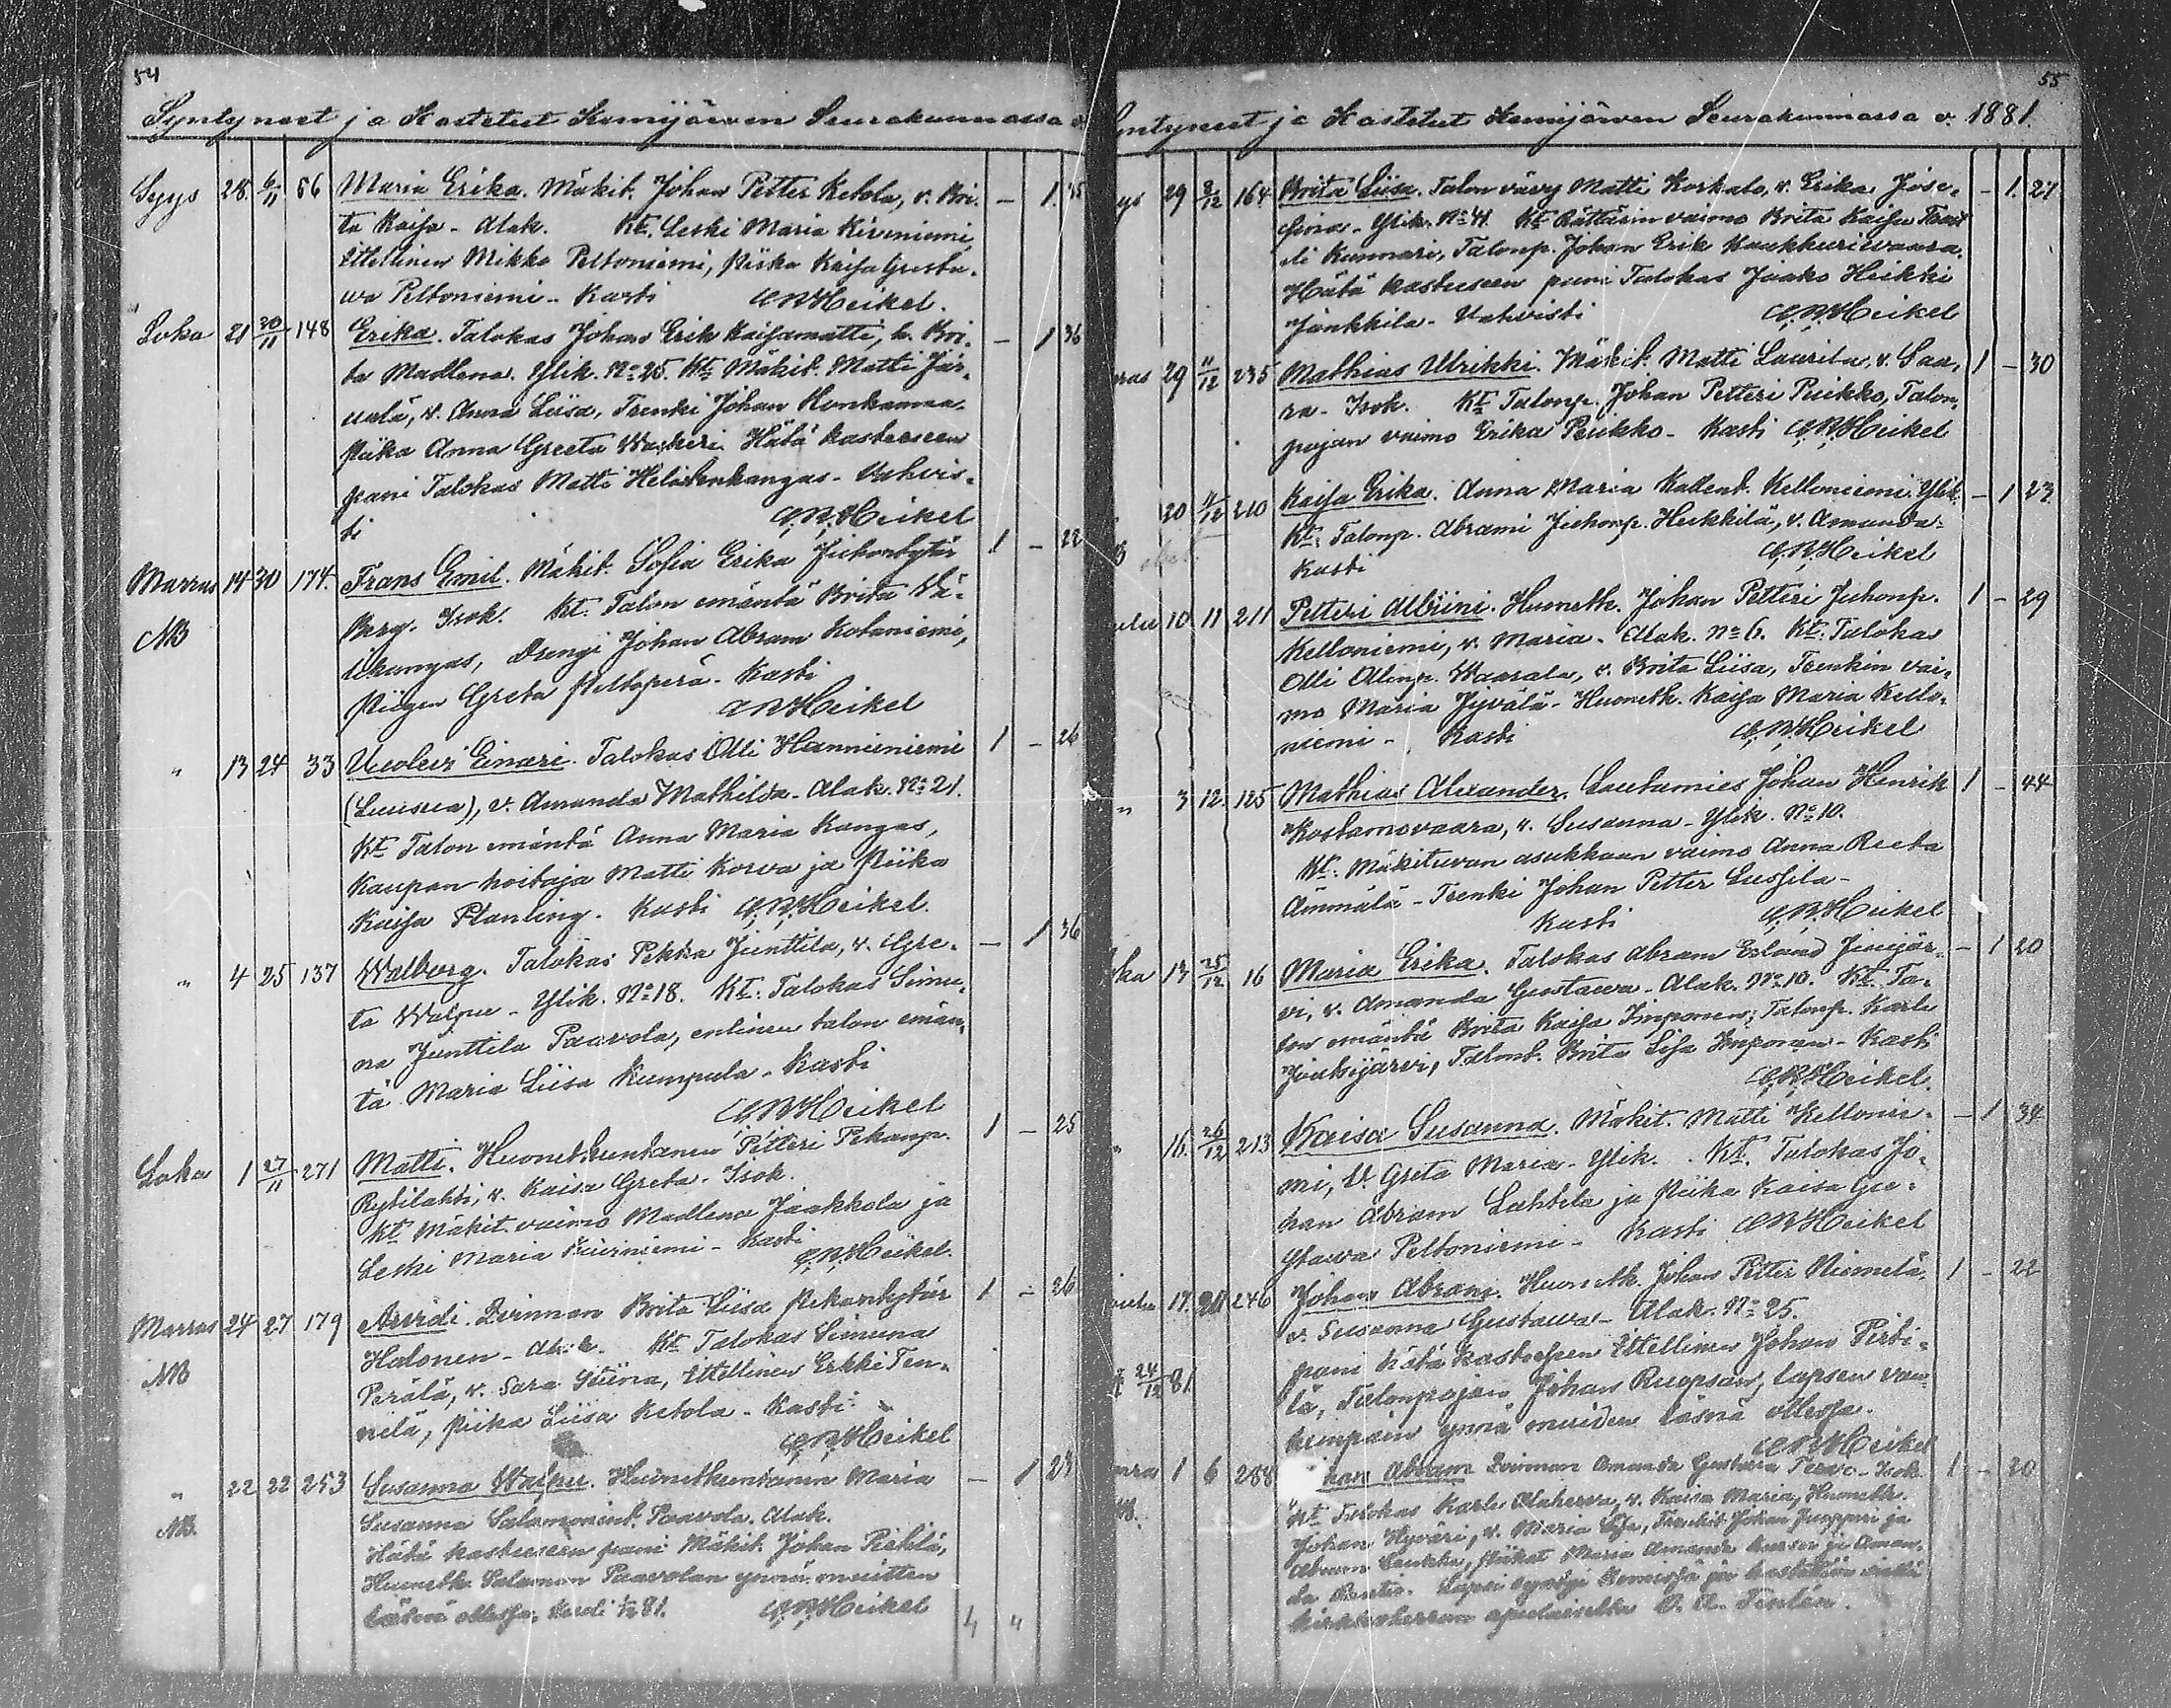 54
Syntyneet ja Kastetut Kemijärven Seurakunnassa v.
Syys 28. 6/11 56 Maria Erika. Mäkit. Johan Petter Ketola, v. Bri- — 1.
ta Kaisa - Alak. Kt. Leski Maria Kirnniemi,
Ittellinen Mikko Peltoniemi, Piika Kaisa Gusta-
va Peltoniemi - Kasti C.R.Heikel.
Loka 21 20/11 148 Erika. Talokas Johan Erik Kaisamatti, v. Bri- — 1 36
ta Madlena. Ylik. No 25. Kt. Mäkit. Matti Jär-
, v. Anna Liisa, Trenki Johan Honkamaa.
Piika Anna Greeta Waskeri Hätä kasteeseen
pani Talokas Matti Helistenkangas - Vahvis-
ti C.R.Heikel
Marras 14 30 174. Frans Emil. Mäkit. Sofia Erika Juhontytär 1 — 22
NB Berg. Isok. Kt. Talon emäntä Brita Wä-
likangas, Drengi Johan Abram Kotaniemi,
Piigen Greta Peltoperä. Kasti
C.R.Heikel
" 13 24 33 Uuolevi Einari. Talokas Olli Hannieniemi 1 — 26
(Luusua), v. Amanda Mathilda - Alak. No 21.
Kt. Talon emäntä Anna Maria Kangas,
Kaupan hoitaja Matti Korva ja Piika
Kaisa Planting. Kasti C.R.Heikel.
" 4 25 137 Walborg. Talokas Pekka Junttila, v. Gre- — 1 36
ta Walpu - Ylik. No 18. Kt. Talokas Simu-
na Junttila Paavola, entinen talon emän-
tä Maria Liisa Kumpula - Kasti
C.R.Heikel
Loka 1 27/11 271 Matti. Huonekuntanen Petteri Pekanp. 1 — 25
Rytilahti, v. Kaisa Greta. Isok.
Kt. Mäkit. vaimo Madlena Jaakkola ja
Leski Maria Kuirniemi - Kasti
C.R.Heikel.
Marras 24 27 179 Arvidi. Irtinnen Brita Liisa Pekantytär 1 — 26
NB Halonen - Alak. Kt. Talokas Simuna
Perälä, v. Sara Stiina, Ittellinen Erkki Ten-
nilä, Piika Liisa Ketola - Kasti
C.R.Heikel
" 22 22 253 Susanna Walpu. Huonetkuntanen Maria — 1 23
NB. Susanna Salomonint. Paavola. Alak.
Hätä kasteeseen pani Mäkit. Johan Pirtilä,
Huoneth. Salomon Paavolan ynnä muitten
läsnä ollessa, Kasti 1/12 81. C.R.Heikel
4 4
55
Syntyneet ja Kastetut Kemijärven Seurakunnassa v. 1881.
29 2/12 164 Brita Liisa. Talon vävy Matti Korkalo, v. Erika Jose- — 1. 27
fiina - Ylik. No 41. Kt. Rättärin vaimo Brita Kaisa
Kunnari, Talonp. Johan Erik Kaakkurivaara.
Hätä kasteeseen pani Talokas Jaako Heikki
Jänkkilä - Vahvisti C.R.Heikel
29 11/12 235 Mathias Ulrikki. Mäkit. Matti Laurila, v. Saa- 1 — 30
ra - Isok. Kt. Talonp. Johan Petteri Puikko, Talon-
pojan vaimo Erika Puikko - Kasti C.R.Heikel
20 4/12 210 Kaisa Erika. Anna Maria Kallent. Kelloniemi. Ylik. — 1 23
Kt. Talonp. Abrami Juhonp. Heikkilä, v. Amanda -
Kasti C.R.Heikel
10. 11 211 Petteri Albiini. Huoneth. Johan Petteri Juhonp. 1 — 29
Kelloniemi, v. Maria - Alak. No 6. Kt. Talokas
Olli Ollinp. Waarala, v. Brita Liisa, Trenkin vai-
mo Maria Jyvälä - Huoneth. Kaisa Maria Kello-
niemi - Kasti C.R.Heikel
" 3 12. 125 Mathias Alexander. Lautamies Johan Henrik 1 — 44
Kostamovaara, v. Susanna - Ylik. No 10.
Kt. Mäkituvan asukkaan vaimo Anna Reeta
Ämmälä - Trenki Johan Petter Lussila -
Kasti C.R.Heikel
13 25/12 16 Maria Erika. Talokas Abram Erland Jinijär- — 1 20
vi, v. Amanda Gustava - Alak. No 10. Kt. Ta-
lon emäntä Brita Kaisa Imponen, Talonp. Karle
Jouksijärvi, Talont. Brita Lisa Imponen - Kasti
C.R.Heikel.
" 16. 26/12 213 Kaisa Susanna. Mäkit. Matti Kellonie- — 1 34
mi, v. Greta Maria - Ylik. Kt. Talokas Jo-
han Abram Lahtela ja Piika Kaisa Gu-
stava Peltoniemi - Kasti C.R.Heikel
17. 20 246 Johan Abram. Huoneth. Johan Petter Niemelä, 1 — 22
v. Susanna Gustava - Alak. No 25.
24/12 81. pani hätä kasteeseen Ittellinen Johan Pirti-
lä, Talonpojan Johan Ruopsan, lapsen van-
hempain ynnä muiden läsnä ollessa.
C.R.Heikel
1 6 288 Johan Abram Irtinnen Amanda Gustava - Isok 1 — 20
Kt. Talokas Karle Alaherva, v. Kaisa Maria, Huoneth.
Johan Hyväri, v. Maria Lisa, Trenkit Johan Junppuri ja
Abram Laukka, Piikat Maria Amanda ja Aman-
da Rautio. Lapsi syntyi Kemissä ja kastettiin sielä
kirkkoherran apulaiselta O. A. Tenlén.